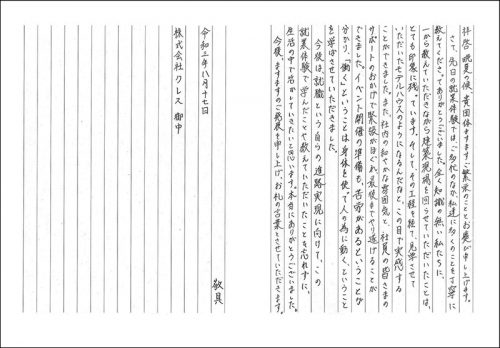 拝啓 晩夏の候、貴団体ますますご繁栄のこととお慶び申し上げます。
さて、先日の就業体験では、ご多忙のなか、私達に多くのことを丁寧に
教えてくださり、ありがとうございました。全く知識の無い私たちに、
一から教えていただきながら建築現場を回らせていただいたことは、
とても印象に残っています。そして、その工程を経て、見学させて
いただいたモデルハウスのようになるんだなと、この目で実感する
ことができました。また、社内の和やかな雰囲気と、社員の皆さまの
サポートのおかげで緊張が日ぐれ、最後までやり遂げることが
できました。イベント開催の準備も、苦労があるということが
分かり、「働く」ということは身体を使って人の為に動く、ということ
を学ばさせていただきました。
今後は就職という自らの進路実現に向けて、この
就業体験で学んだことや教えていただいたことを忘れずに、
生活の中で活かしていきたいと思います。本当にありがとうございました。
今後、ますますのご発展を申し上げ、お礼の言葉とさせていただきます。
敬具
令和三年八月十七日
株式会社クレス 御中